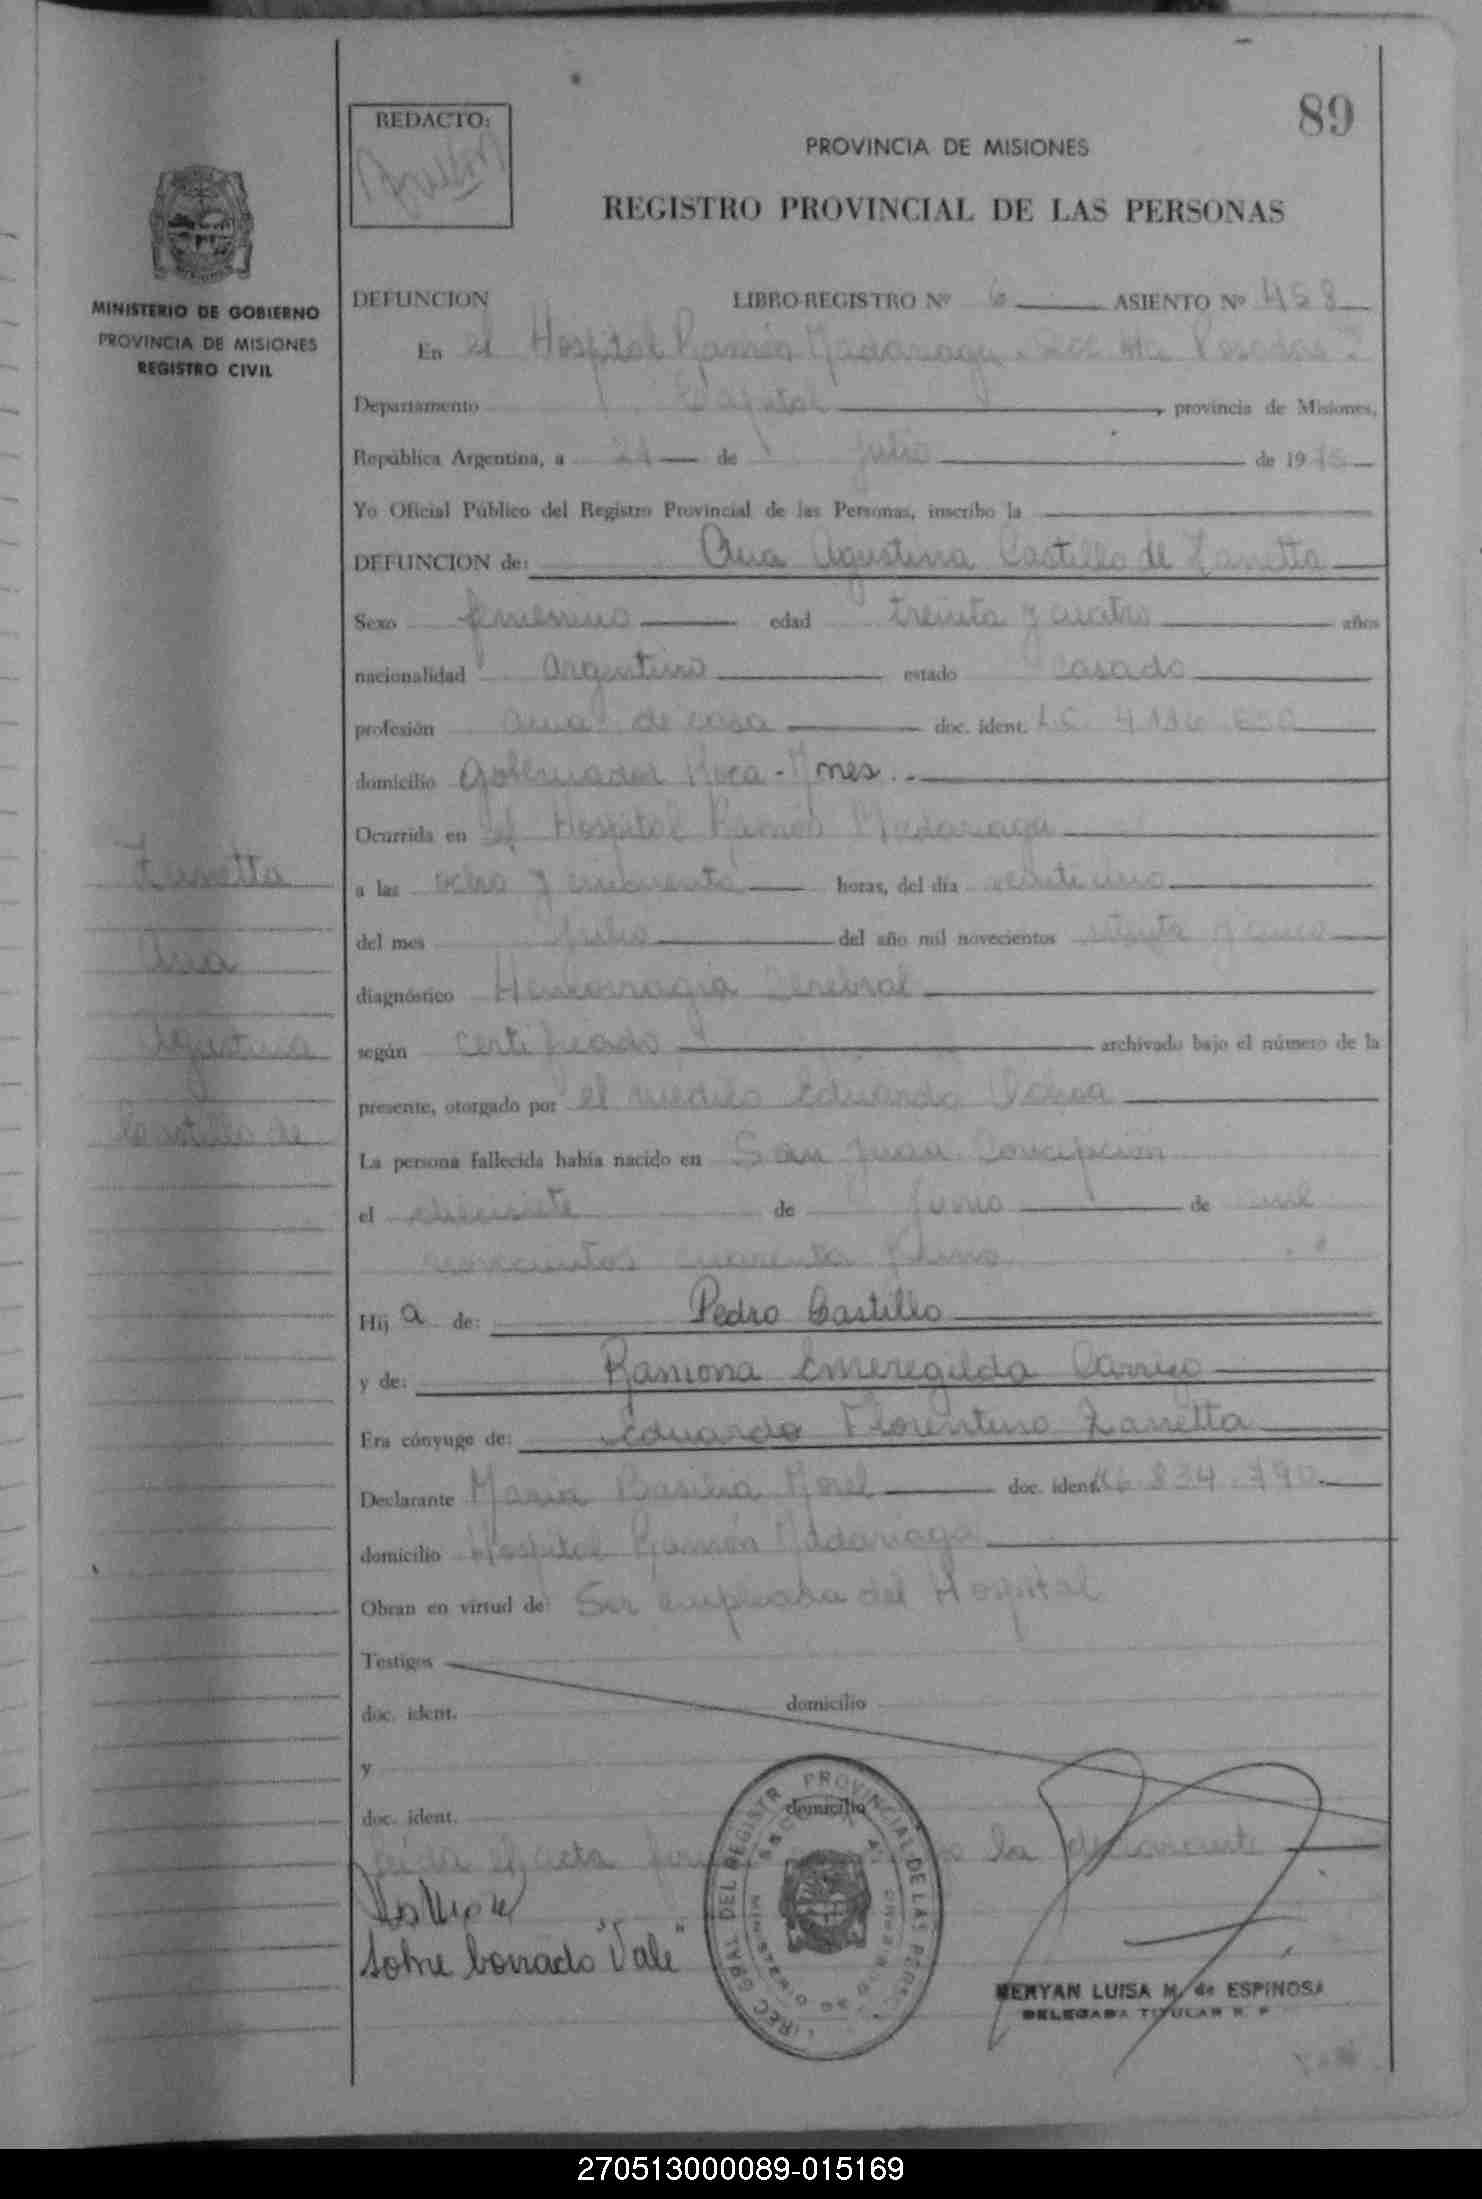 89
REDACTO:
PROVINCIA DE MISIONES
REGISTRO PROVINCIAL DE LAS PERSONAS
MINISTERIO DE GOBIERNO
PROVINCIA DE MISIONES
REGISTRO CIVIL
DEFUNCION LIBRO-REGISTRO Nº 6 ASIENTO Nº 458
En el Hospital Ramón Madariaga Posadas
Departamento Capital, provincia de Misiones,
República Argentina, a 21 de julio de 1975
Yo Oficial Público del Registro Provincial de las Personas, inscribo la
DEFUNCION de: Ana Agustina Castillo de Zanetta
Sexo femenino edad treinta y cuatro años
nacionalidad Argentina estado casada
profesión ama de casa doc. ident. L.C. 4.136.650
domicilio Gobernador Roca - Mnes.
Ocurrida en el Hospital Ramón Madariaga
a las ocho y cincuenta horas, del día veintiuno
del mes julio del año mil novecientos setenta y cinco
diagnóstico Hemorragia Cerebral
según certificado archivado bajo el número de la
presente, otorgado por el médico Eduardo Ochoa
La persona fallecida había nacido en San Juan Concepción
el diecisiete de junio de mil
novecientos cuarenta y uno
Hij a de: Pedro Castillo
y de: Ramona Emeregilda Carrizo
Era cónyuge de: Eduardo Florentino Zanetta
Declarante Maria Basilia Morel doc. ident. 6.834.790
domicilio Hospital Ramón Madariaga
Obran en virtud de: Ser empleada del Hospital
Testigos
doc. ident. domicilio
y
doc. ident. domicilio
Leída el acta la declarante
Sobre borrado "Vale"
Zanetta
Ana
Agustina
Castillo de
DIREC. GRAL. DEL REGISTR. PROVINCIAL DE LAS PERSO
MINISTERIO DE GOBIERNO
MERYAN LUISA M. de ESPINOSA
DELEGADA TITULAR R. P.
270513000089-015169